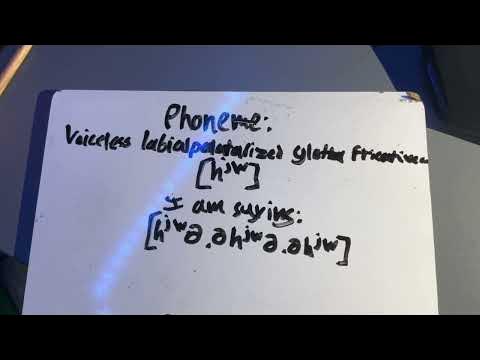 Phoneme:
Voiceless labialpalatalized glottal Fricative
[hʲʷ]
I am saying:
[hʲʷə.əhʲʷə.əhʲʷ]